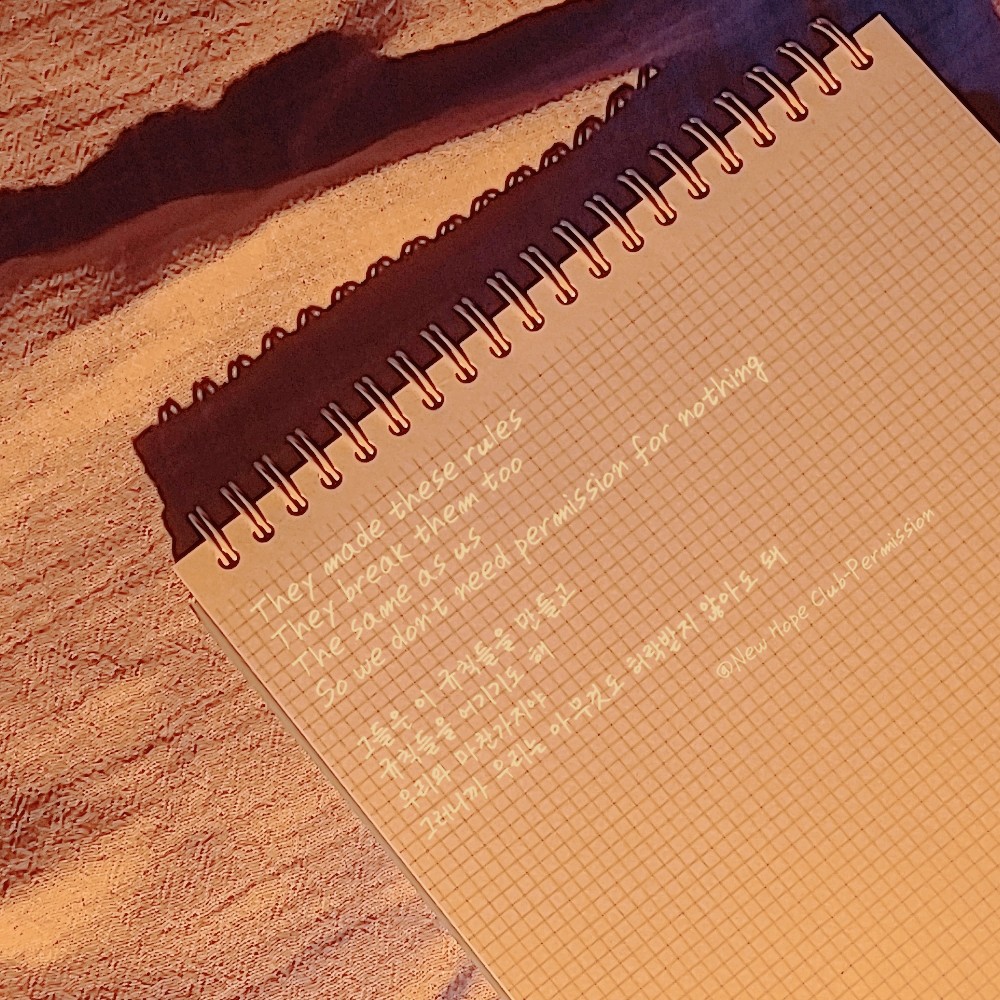 They made these rules
They break them too
The same as us
So we don't need permission for nothing
그들은 이 규칙들을 만들고
규칙들을 어기기도 해
우리와 마찬가지야
그러니까 우리는 아무것도 허락받지 않아도 돼
@New Hope Club-Permission